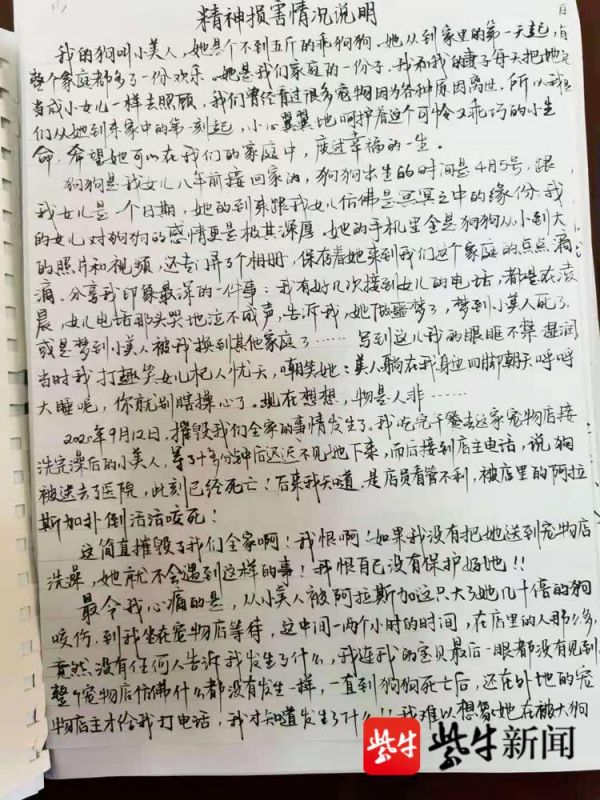 精神损害情况说明
我的狗叫小美人，她是个不到五斤的乖狗狗。她从到家里的第一天起，
整个家庭都多了一份欢乐。她是我们家庭的一份子。我和我的妻子每天把她
当成小女儿一样去照顾，我们曾经有过很多宠物因为各种原因离世，所以我
们从她到来家中的第一刻起，小心翼翼地呵护着这个可怜又乖巧的小生
命，希望她可以在我们的家庭中，度过幸福的一生。
狗狗是我女儿八年前接回家的，狗狗出生的时间是4月5号，跟
我女儿是一个日期，她的到来跟我女儿仿佛是冥冥之中的缘份。我
的女儿对狗狗的感情更是极其深厚。她的手机里全是狗狗从小到大
的照片和视频，还专门弄了个相册，保存着她来到我们这个家庭的点点滴
滴。分享我印象最深的一件事：我有好几次接到女儿的电话，都是在凌
晨，女儿电话那头哭地泣不成声，告诉我，她做噩梦了，梦到小美人死了，
或是梦到小美人被我换到其他家庭了……写到这儿我的眼眶不禁湿润
当时我打趣笑女儿杞人忧天，嘲笑她：美人躺在我身边四脚朝天呼呼
大睡呢，你就别瞎操心了。现在想想，物是人非……
2020年9月12日，摧毁我们全家的事情发生了。我吃完午餐去这家宠物店接
洗完澡后的小美人，等了十多分钟后迟迟不见她下来，而后接到店主电话，说狗
被送去了医院，此刻已经死亡！后来我知道，是店员看管不利，被店里的阿拉
斯加扑倒活活咬死！
这简直摧毁了我们全家啊！我恨啊！如果我没有把她送到宠物店
洗澡，她就不会遇到这样的事！我恨自己没有保护好她！！
最令我心痛的是，从小美人被阿拉斯加这只大了她几十倍的狗
咬伤，到我坐在宠物店等待，这中间一两个小时的时间，在店里的人那么多，
竟然没有任何人告诉我发生了什么，我连我的宝贝最后一眼都没有见到
整个宠物店仿佛什么都没有发生一样，一直到狗狗死亡后，还在外地的宠
物店主才给我打电话，我才知道发生了什么！！我难以想象她在被大狗
紫牛新闻